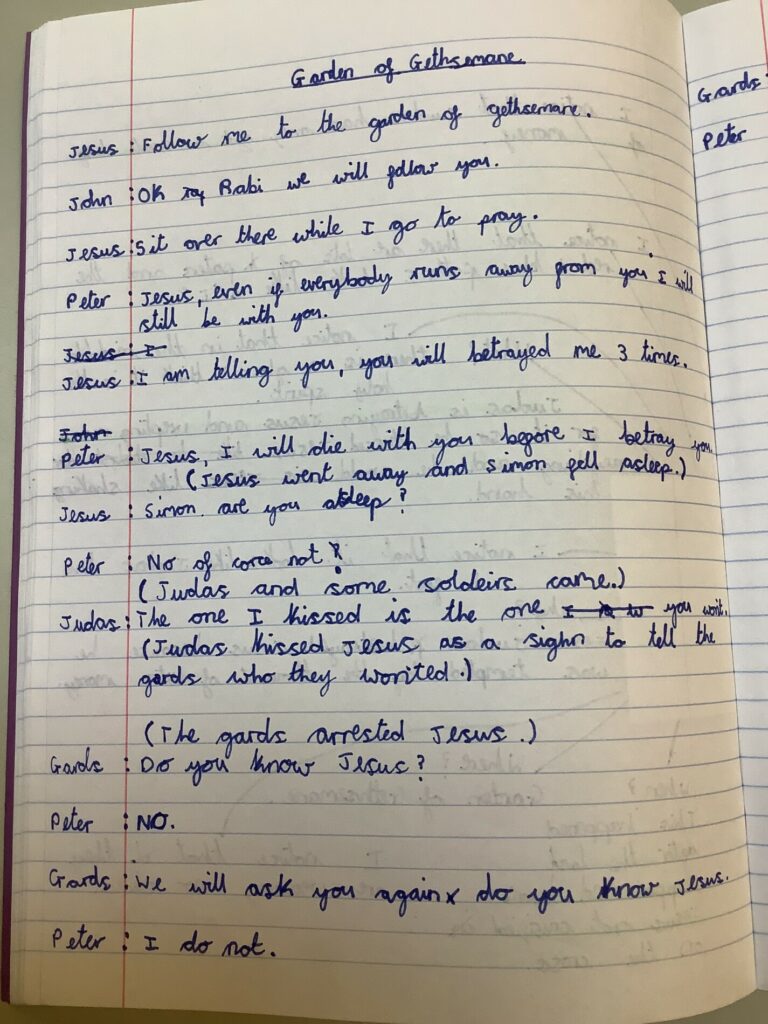 Garden of Gethsemane
Jesus : Follow me to the garden of gethsemane.
John : OK Rabi we will follow you.
Jesus : Sit over there while I go to pray.
Peter : Jesus, even if everybody runs away from you I will
still be with you.
Jesus : I
Jesus : I am telling you, you will betrayed me 3 times.
John
Peter : Jesus, I will die with you before I betray you.
(Jesus went away and Simon fell asleep.)
Jesus : Simon. are you asleep?
Peter : No of corce not
(Judas and some soldeirs came.)
Judas : The one I kissed is the one you wont.
(Judas kissed Jesus as a sighn to tell the
gards who they wonted.)
(The gards arrested Jesus.)
Gards : Do you know Jesus?
Peter : NO.
Gards : We will ask you again do you know Jesus.
Peter : I do not.
Gards :
Peter